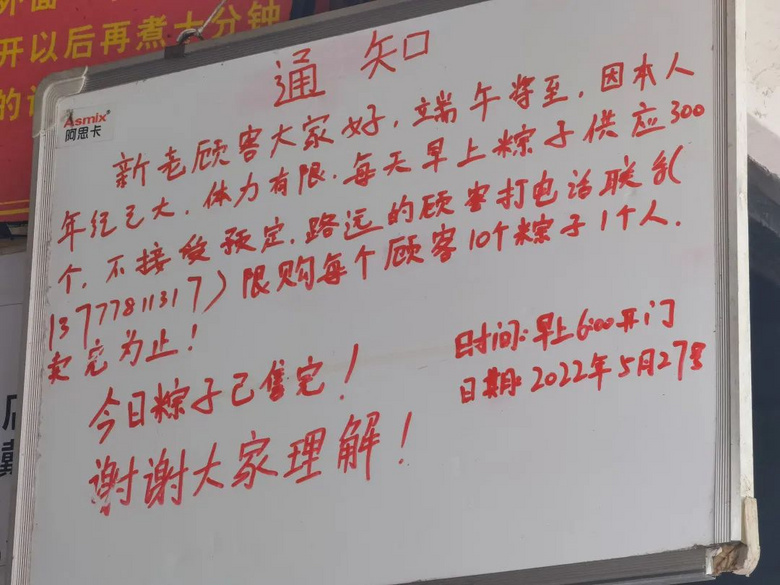 外面
开以后再煮十分钟
的
Asmix
阿思卡
通知
新老顾客大家好,端午将至,因本人
年纪已大,体力有限.每天早上粽子供应300
个,不接受预定,路远的顾客打电话联系(
13777811317)限购每个顾客10个粽子1个人.
卖完为止!
今日粽子已售完!
谢谢大家理解!
时间:早上6:00开门
日期:2022年5月27号
店